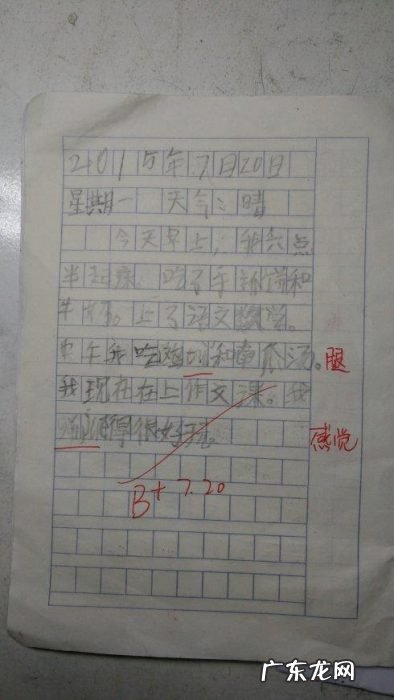 2015年7月20日
星期一 天气：晴
今天早上，我六点
半起床。吃了牛和
牛奶。上了语文数学。
中午我吃鸡和冬瓜汤。腿
我现在在上作文课。我
得很好玩。感觉
B+ 7.20
广东龙网